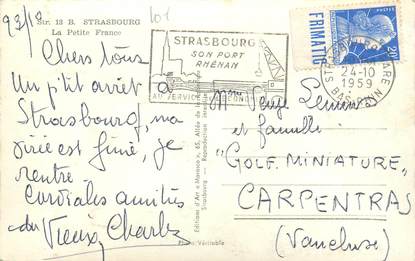 93/18
Str. 13 B. STRASBOURG
La Petite France
101
Chers tous
Un p'tit arrêt à
Strasbourg, ma
virée est finie, je
rentre.
Cordiales amitiés
du Vieux Charles
Photo Véritable
Editions d'Art "Maroco", 65, Allée de la
Strasbourg - Reproduction interdite
STRASBOURG
SON PORT
RHÉNAN
AU SERVICE
FRIMATIC
20F
STRASBOURG GARE
24-10
1959
BAS RHIN
Serge
et famille
"GOLF. MINIATURE"
CARPENTRAS
(Vaucluse)